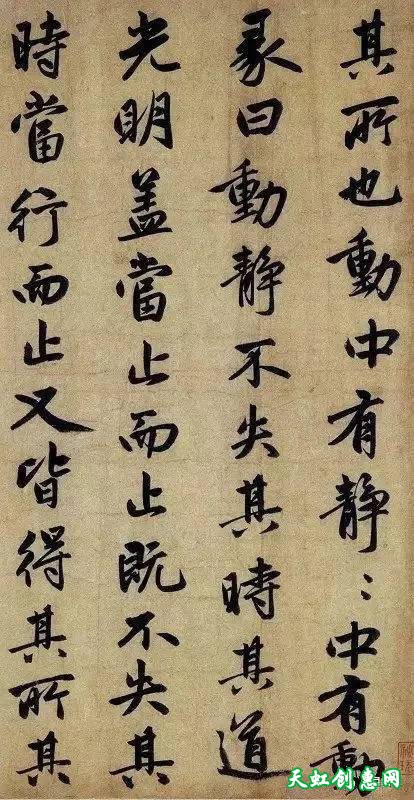 其所也動中有静〻中有動
彖曰動静不失其時其道
光明盖當止而止既不失其
時當行而止又皆得其所其
天虹创惠网